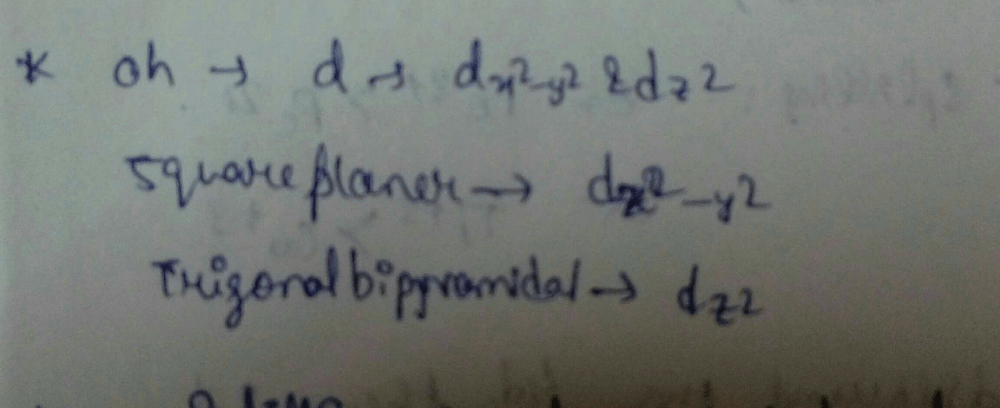 * Oh → d → dx²-y² & dz²
square planer → dx²-y²
Trigonal bipyramidal → dz²